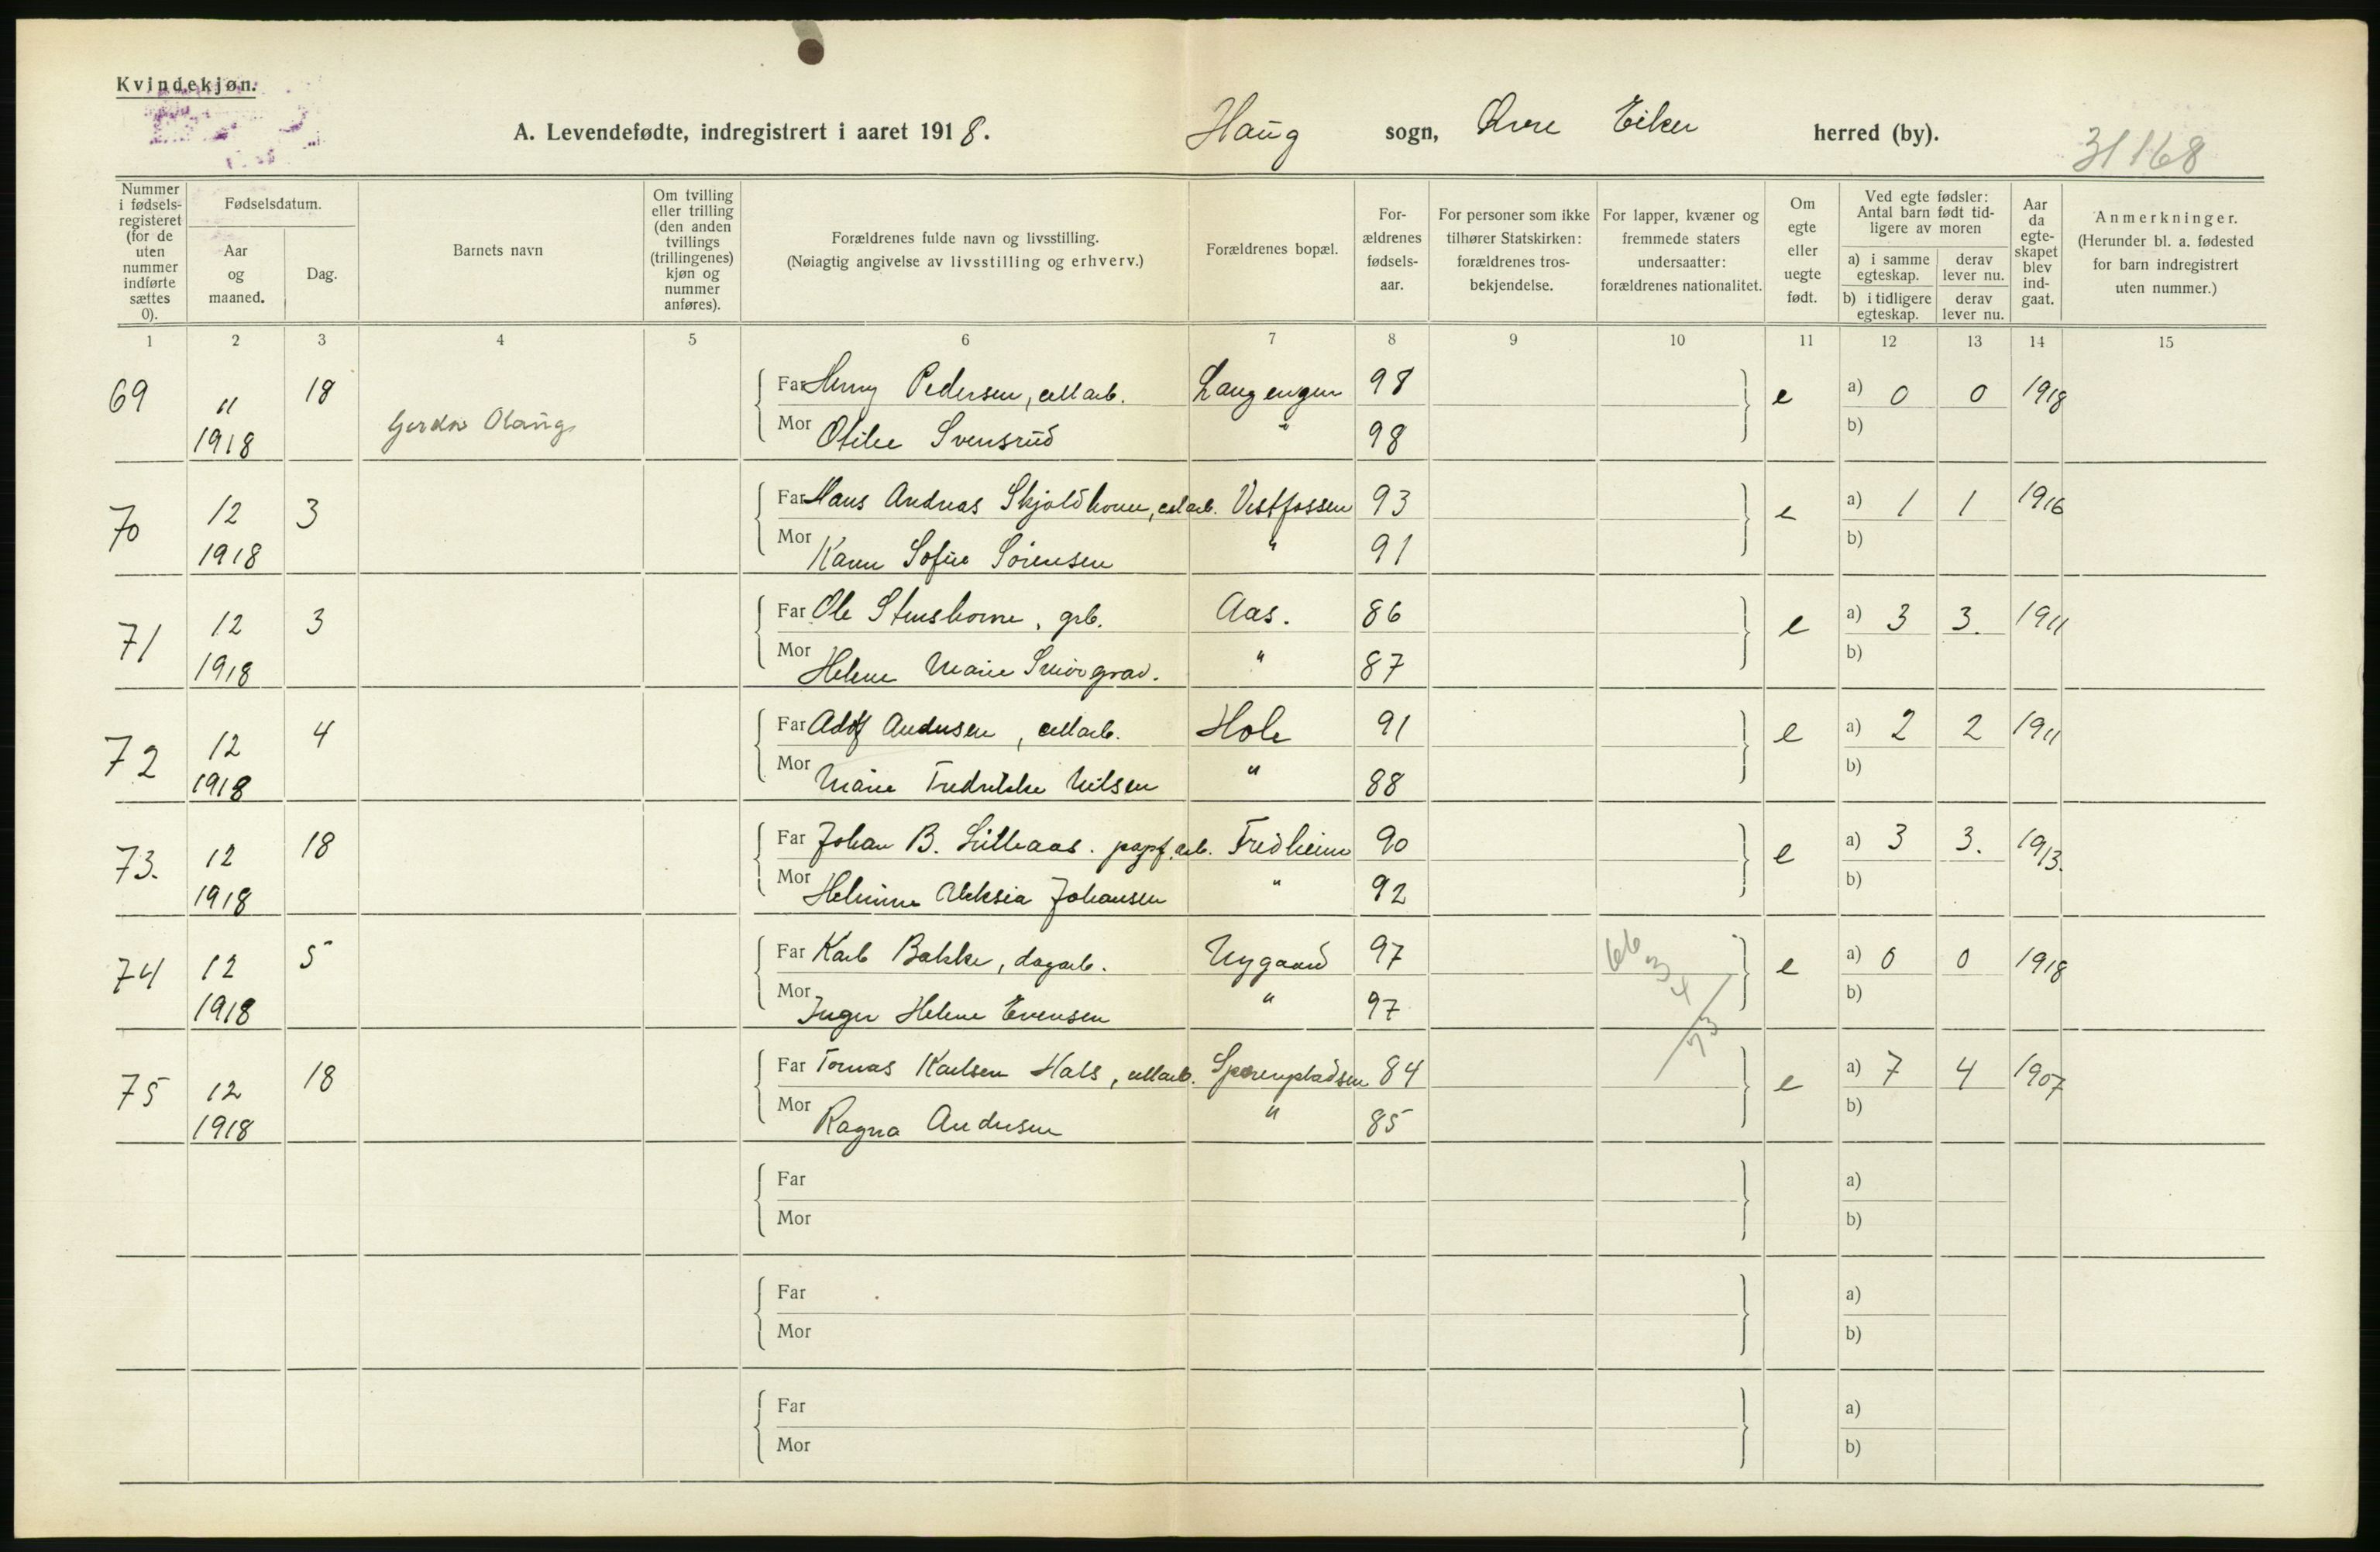 Kvindekjøn.
A. Levendefødte, indregistrert i aaret 1918. Haug sogn, Øvre Eiker herred (by). 31168
Nummer i fødselsregisteret (for de uten nummer indførte sættes 0).
Fødselsdatum.
Aar og maaned.
Dag.
Barnets navn
Om tvilling eller trilling (den anden tvillings (trillingenes) kjøn og nummer anføres).
Forældrenes fulde navn og livsstilling.
(Nøiagtig angivelse av livsstilling og erhverv.)
Forældrenes bopæl.
Forældrenes fødselsaar.
For personer som ikke tilhører Statskirken: forældrenes trosbekjendelse.
For lapper, kvæner og fremmede staters undersaatter: forældrenes nationalitet.
Om egte eller uegte født.
Ved egte fødsler: Antal barn født tidligere av moren
a) i samme egteskap.
derav lever nu.
b) i tidligere egteskap.
derav lever nu.
Aar da egteskapet blev indgaat.
Anmerkninger.
(Herunder bl. a. fødested for barn indregistrert uten nummer.)
1 2 3 4 5 6 7 8 9 10 11 12 13 14 15
69 11 18 Far Henry Pedersen, cellarb. Langengen 98 e a) 0 0 1918
1918 Gerda Olaug Mor Otilie Svensrud " 98 b)
70 12 3 Far Hans Andreas Skjoldhorne, celarb. Vestfossen 93 e a) 1 1 1916
1918 Mor Karen Sofie Sörensen " 91 b)
71 12 3 Far Ole Stenshorne, grb. Aas. 86 e a) 3 3. 1911
1918 Mor Helene Marie Smörgrav. " 87 b)
72 12 4 Far Adolf Andersen, cellarb. Hole 91 e a) 2 2 1911
1918 Mor Marie Fredrikke Nilsen " 88 b)
73. 12 18 Far Johan B. Lilleaas. papf.arb. Fredheim 90 e a) 3 3. 1913.
1918 Mor Helmine Aleksia Johansen " 92 b)
74 12 5 Far Karl Bakke, dagarb. Nygaard 97 e a) 0 0 1918
1918 Mor Inger Helene Evensen " 97 b)
66
3
4
73
75 12 18 Far Tomas Karlsen Hals, cellarb. 84 e a) 7 4 1907
1918 Mor Ragna Andersen " 85 b)
Far a)
Mor b)
Far a)
Mor b)
Far a)
Mor b)